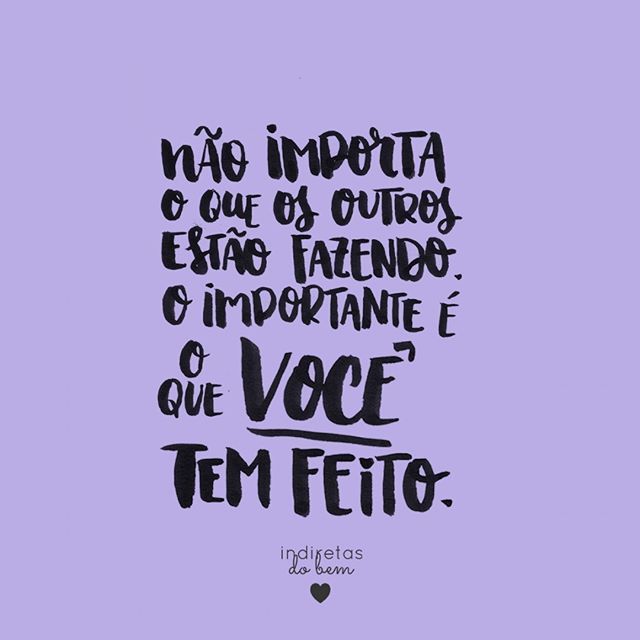 NÃO IMPORTA
O QUE OS OUTROS
ESTÃO FAZENDO.
O IMPORTANTE É
O QUE VOCÊ
TEM FEITO.
indiretas
do bem